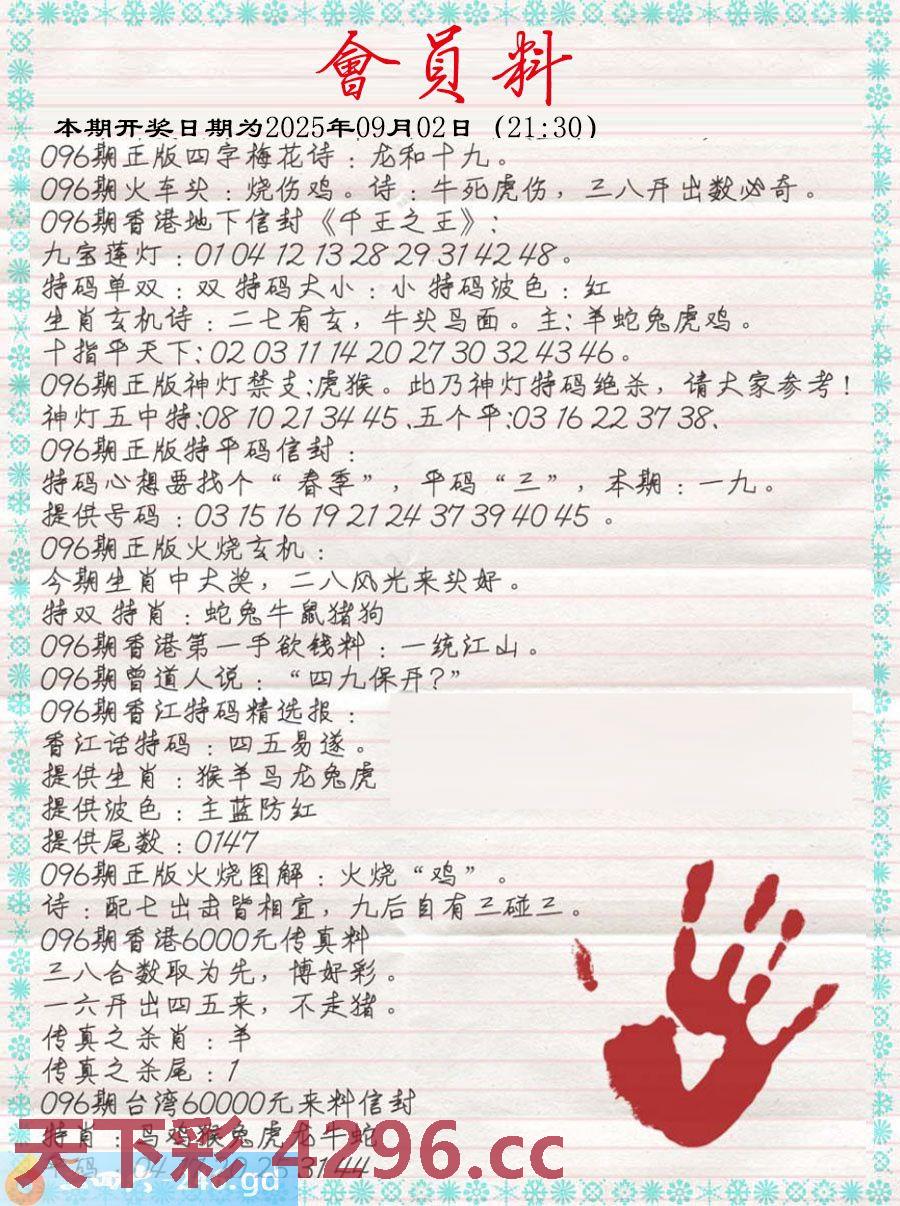 會員料
本期开奖日期为2025年09月02日（21:30）
096期正版四字梅花诗：龙和十九。
096期火车头：烧伤鸡。诗：牛死虎伤，三八开出数必奇。
096期香港地下信封《千王之王》：
九宝莲灯：01 04 12 13 28 29 31 42 48。
特码单双：双 特码大小：小 特码波色：红
生肖玄机诗：二七有玄，牛头马面。主：羊蛇兔虎鸡。
十指平天下：02 03 11 14 20 27 30 32 43 46。
096期正版神灯禁支：虎猴。此乃神灯特码绝杀，请大家参考！
神灯五中特：08 10 21 34 45、五个平：03 16 22 37 38、
096期正版特平码信封：
特码心想要找个“春季”，平码“三”，本期：一九。
提供号码：03 15 16 19 21 24 37 39 40 45 。
096期正版火烧玄机：
今期生肖中大奖，二八风光来头好。
特双 特肖：蛇兔牛鼠猪狗
096期香港第一手欲钱料：一统江山。
096期曾道人说：“四九保开？”
096期香江特码精选报：
香江话特码：四五易遂。
提供生肖：猴羊马龙兔虎
提供波色：主蓝防红
提供尾数：0147
096期正版火烧图解：火烧“鸡”。
诗：配七出击皆相宜，九后自有三碰三。
096期香港6000元传真料
三八合数取为先，博好彩。
一六开出四五来，不走猪。
传真之杀肖：羊
传真之杀尾：1
096期台湾60000元来料信封
特肖：马鸡猴兔虎龙牛蛇
天下彩.4296.cc
31 44